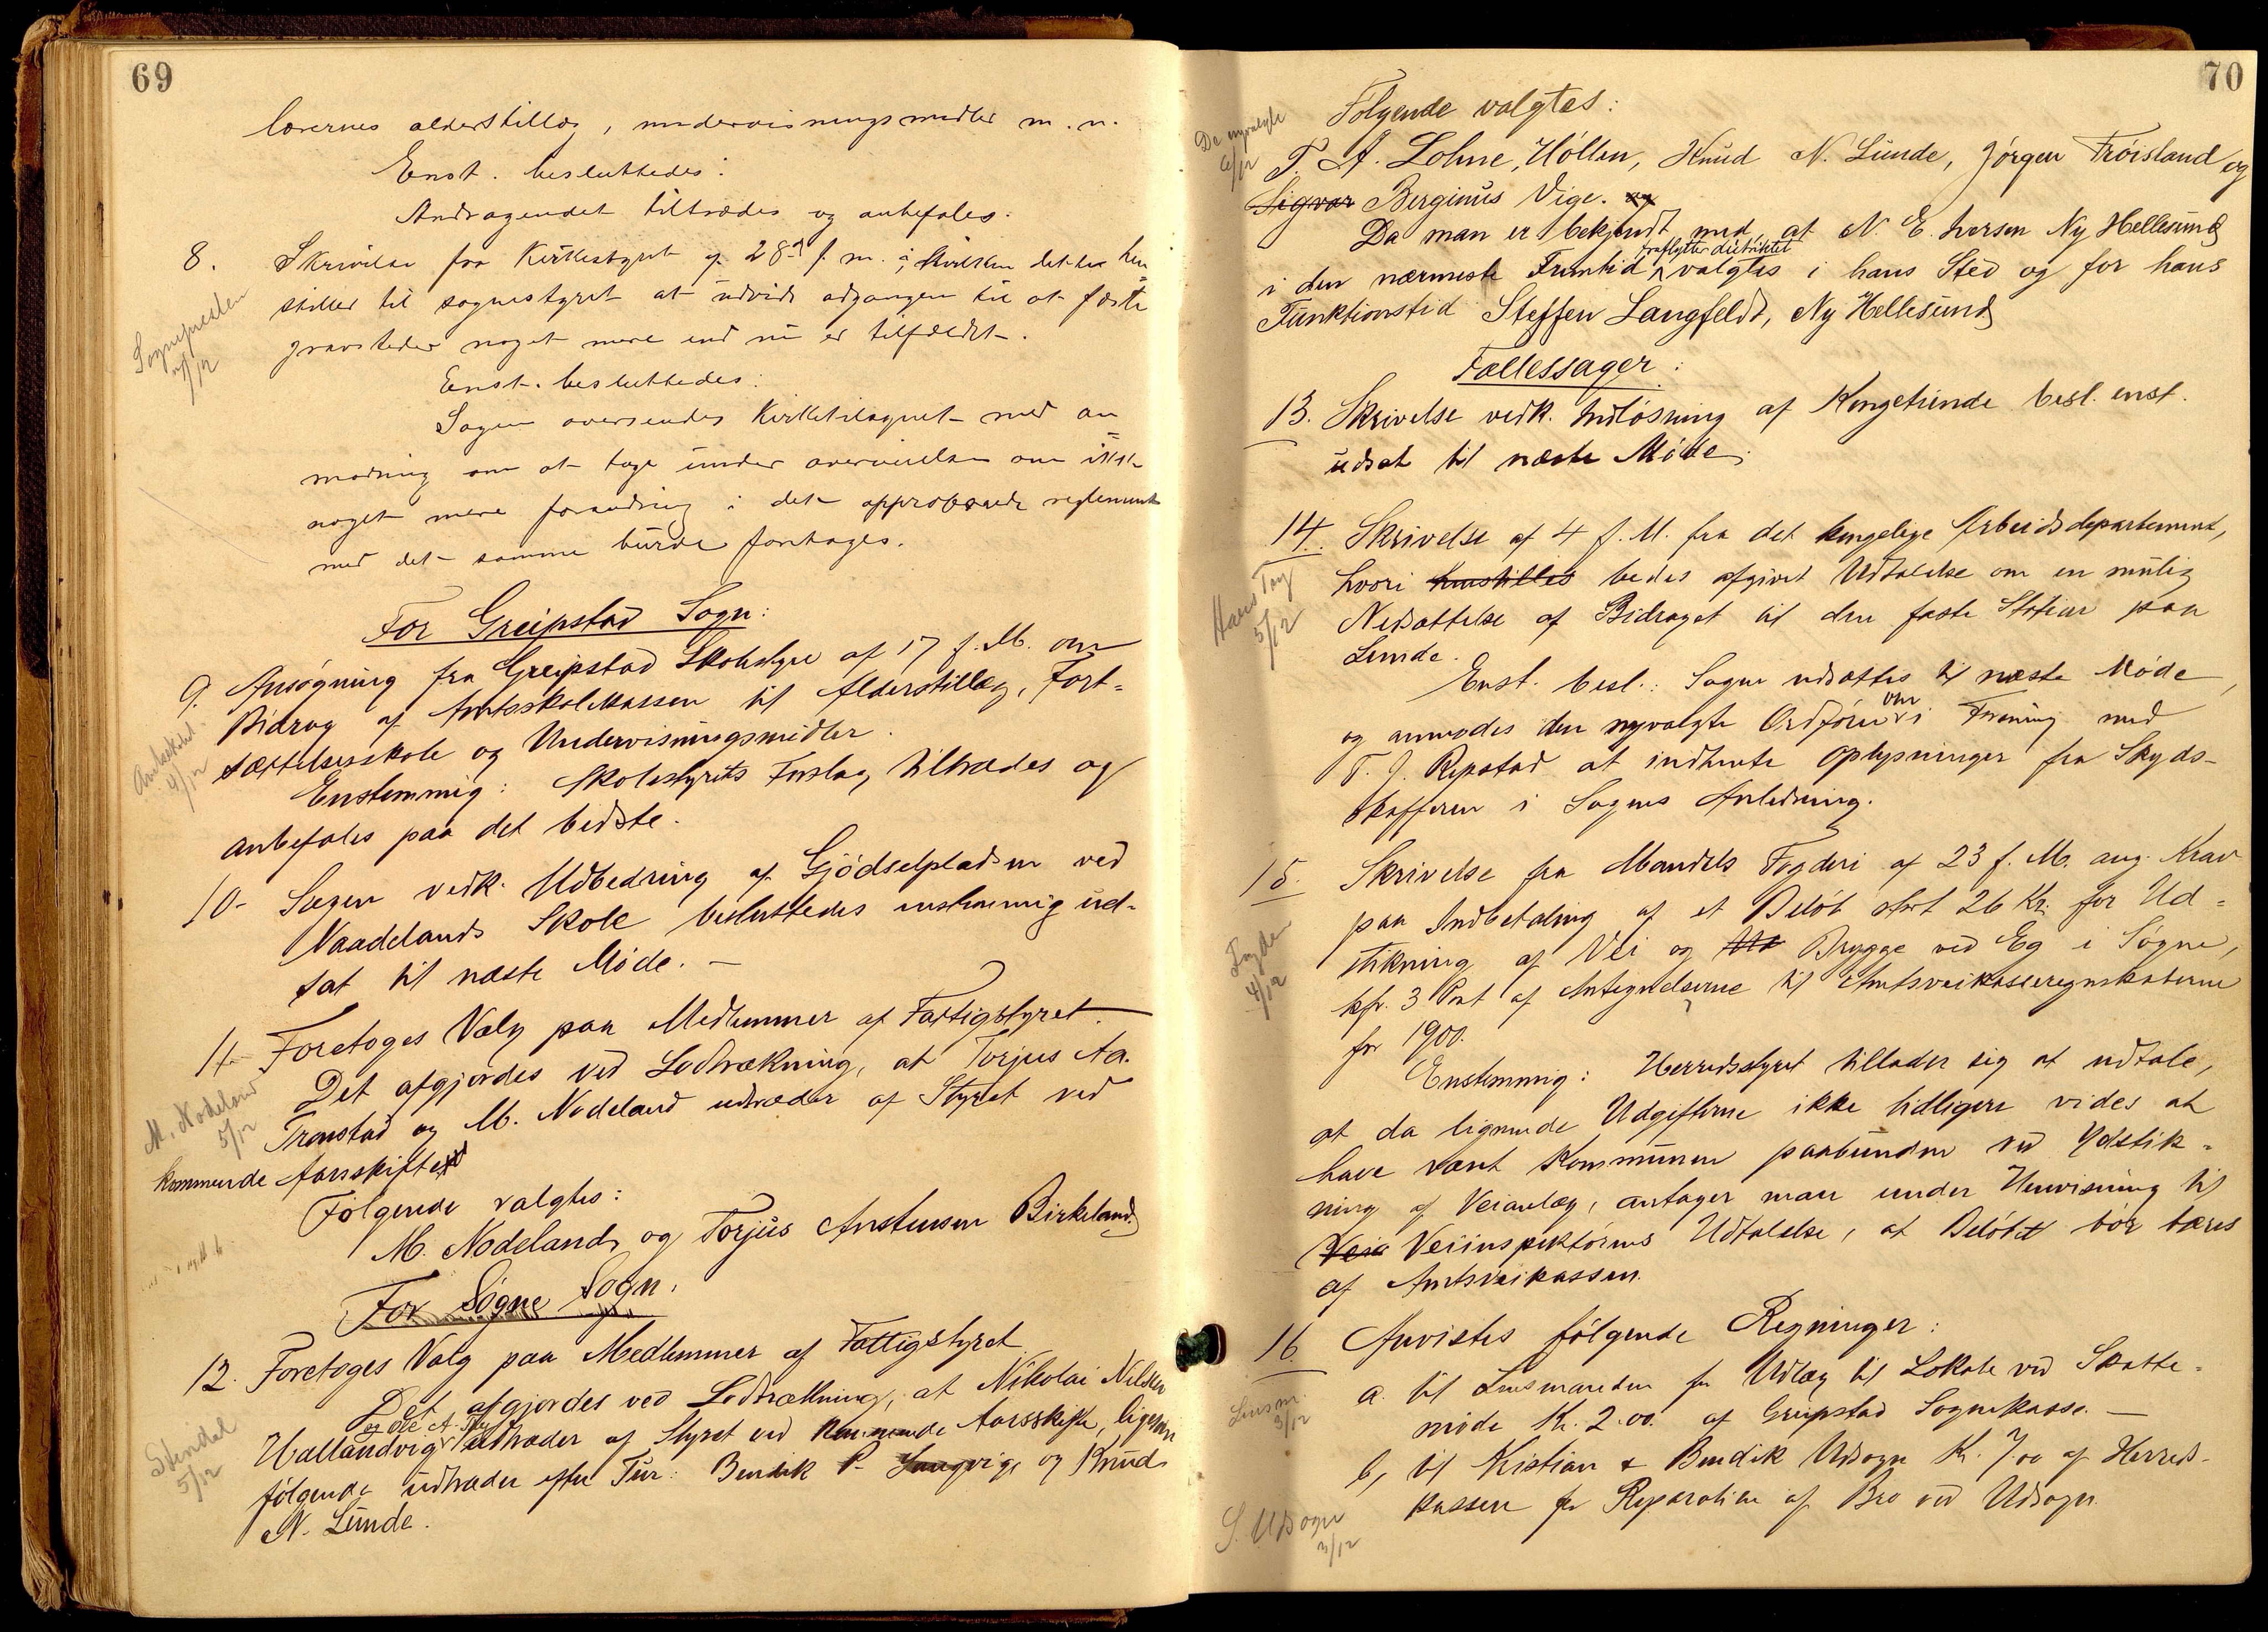 69
lærernes alderstillæg, undervisningsmidler m. v.
Enst. besluttedes:
Andragendet tiltrædes og anbefales.
8. Skrivelse fra Kirkestyret af 28de f. m. i hvilken dette hen
stiller til sognestyret at udvide adgangen til at fæste
gravsteder noget mere end nu er tilfældet.
Sognepresten
4/12
Enst. besluttedes:
Sagen oversendes Kirketilsynet med an
modning om at tage under overveielse om ikke
noget mere forandring i det approberede reglement
med det samme burde foretages.
For Greipstad Sogn:
9. Ansøgning fra Greipstad Skolestyre af 17 f. M. om
Bidrag af Amtsskolekassen til Alderstillæg, Fort-
sættelsesskole og Undervisningsmidler.
4/12
Enstemmig: Skolestyrets Forslag tiltrædes og
anbefales paa det bedste.
10- Sagen vedk. Udbedring af Gjødselpladsen ved
Naadelands Skole besluttedes enstemmig ud-
sat til næste Møde. -
11. Foretoges Valg paa Medlemmer af Fattigstyret.
Det afgjordes ved Lodtrækning, at Torjus Aa.
Tronstad og M. Nodeland udtræder af Styret ved
M. Nodeland
5/12
kommende Aarsskifte
Følgende valgtes:
M. Nodeland og Torjus Anstensen Birkeland.
For Søgne Sogn.
12. Foretoges Valg paa Medlemmer af Fattigstyret
Det afgjordes ved Lodtrækning, at Nikolai Nilsen
og Ole A.
Hallandvig udtræder af Styret ved kommende Aarsskifte, ligesom
Stendel
5/12
følgende udtræder efter Tur: Bendik P. Langvige og Knud
N. Lunde.
70
Følgende valgtes:
De nyvalgte
6/12
T. A. Lohne, Höllen, Knud N. Lunde, Jørgen Trøisland og
Sigvar Berginus Vige. og
Da man er bekjendt med, at N. E. Iversen Ny Hellesund
fraflytter distriktet
i den nærmeste Fremtid valgtes i hans Sted og for hans
Funktionstid Steffen Langfeldt, Ny Hellesund
Fællessager:
13. Skrivelse vedk. Indløsning af Kongetiende besl. enst.
udsat til næste Møde.
14. Skrivelse af 4 f. M. fra det kongelige Arbeidsdepartement,
hvori henstilles bedes afgivet Udtalelse om en mulig
Hans Tag
5/12
Nedsættelse af Bidraget til den faste Station paa
Lunde.
Enst. besl.: Sagen udsættes til næste Møde,
om
og anmodes den nyvalgte Ordfører i Forening med
T. J. Repstad at indhente Oplysninger fra Skyds-
skafferen i Sagens Anledning.
15. Skrivelse fra Mandals Fogderi af 23 f. M. ang. Krav
paa Indbetaling af et Beløb stort 26 Kr. for Ud-
stikning af Vei og Brygge ved Eg i Søgne,
Fogden
4/12
kfr. 3 Post af Antegnelserne til Amtsveikasseregnskaberne
for 1900.
Enstemmig: Herredsstyret tillader sig at udtale,
at da lignende Udgifterne ikke tidligere vides at
have været Kommunen paabunden ved Udstik-
ning af Veianlæg, antager man under Henvisning til
Veia Veiinspektørens Udtalelse, at Beløbet bør bæres
af Amtsveikassen.
16. Anvistes følgende Regninger:
a. til Lensmanden for Udlæg til Lokale ved Skatte-
Lensm.
3/12
møde Kr. 2.00 af Greipstad Sognekasse. -
b, til Kristian & Bendik Udsogn Kr. 7.00 af Herreds-
kassen for Reparation af Bro ved Udsogn.
S. Udsogn
3/12